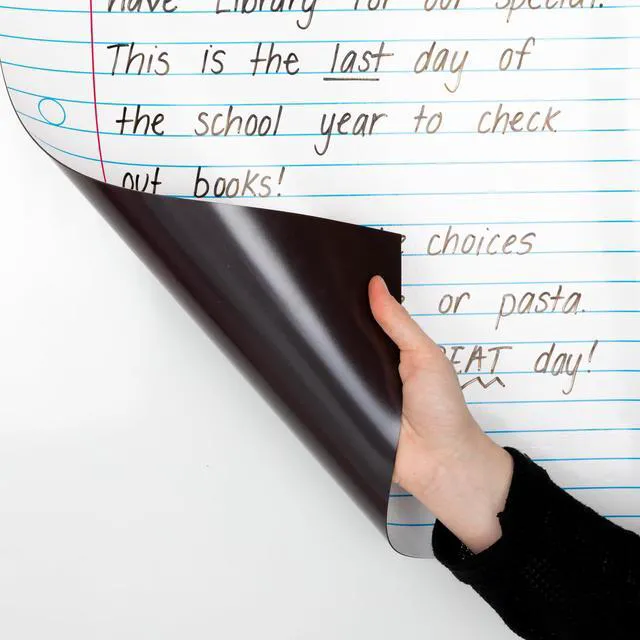 have Library for our special.
This is the last day of
the school year to check
out books!
choices
or pasta.
day!